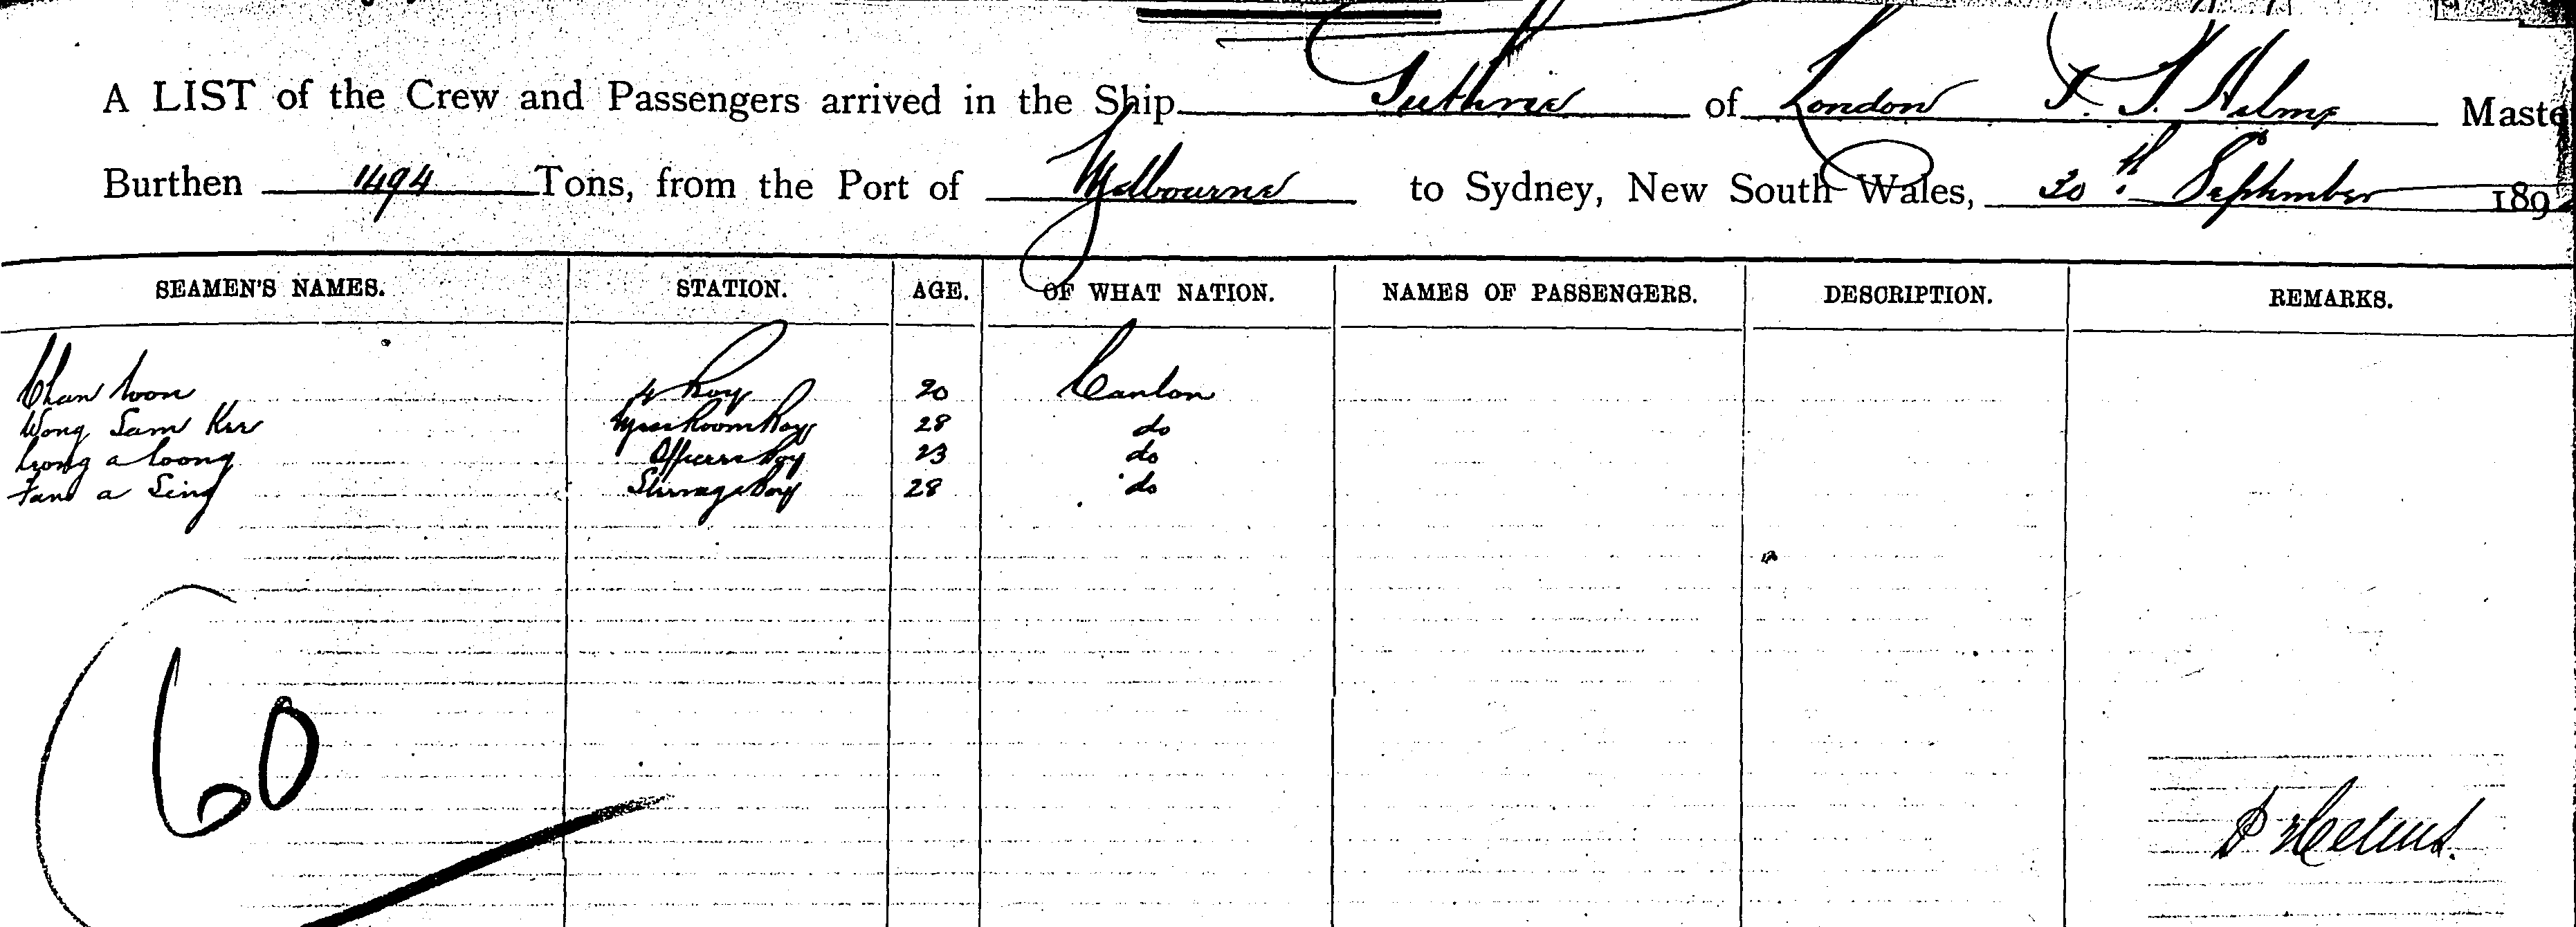 A LIST of the Crew and Passengers arrived in the Ship Guthrie of London Helms Maste
Burthen 1494 Tons, from the Port of Melbourne to Sydney, New South Wales, 30th September 189
SEAMEN'S NAMES. STATION. AGE. OF WHAT NATION. NAMES OF PASSENGERS. DESCRIPTION. REMARKS.
Chan Boy 20 Canton
Wong Sam Kee Mess Room Boy 28 do
a Officers Boy 23 do
a Sing Steerage Boy 28 do
60